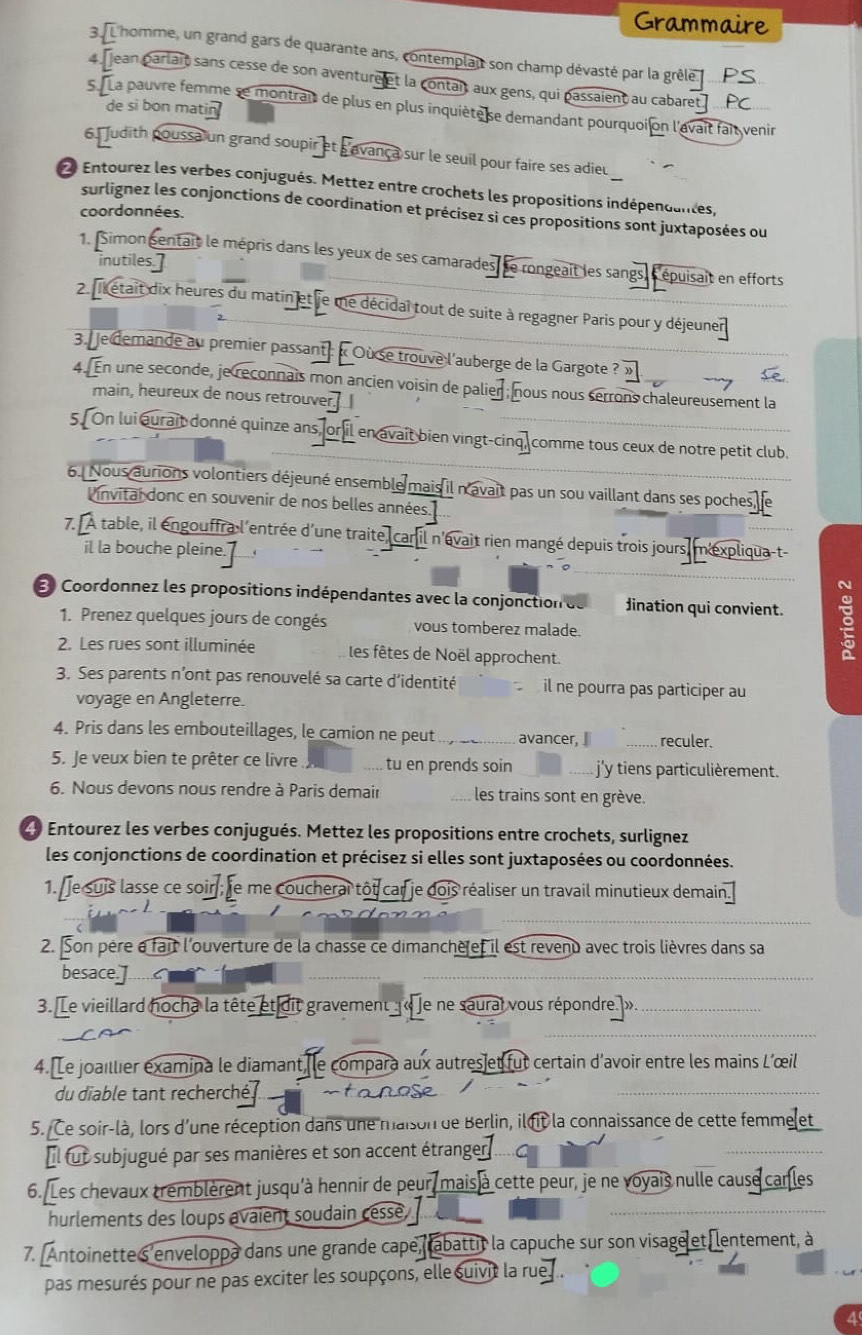 Grammaire
3. [L'homme, un grand gars de quarante ans, contemplait son champ dévasté par la grêle.] PS
4. [Jean parlait sans cesse de son aventure] et [la contait aux gens, qui passaient au cabaret.] PC
5. [La pauvre femme se montrait de plus en plus inquiète] se demandant pourquoi [on l'avait fait venir
de si bon matin]
6. [Judith poussa un grand soupir] et [s'avança sur le seuil pour faire ses adieu
2 Entourez les verbes conjugués. Mettez entre crochets les propositions indépendantes,
surlignez les conjonctions de coordination et précisez si ces propositions sont juxtaposées ou
coordonnées.
1. [Simon sentait le mépris dans les yeux de ses camarades,] [se rongeait les sangs,] [s'épuisait en efforts
inutiles.]
2. [Il était dix heures du matin] et [je me décidai tout de suite à regagner Paris pour y déjeuner]
3. [Je demande au premier passant] : [« Où se trouve l'auberge de la Gargote ? »]
4. [En une seconde, je reconnais mon ancien voisin de palier] ; [nous nous serrons chaleureusement la
main, heureux de nous retrouver.]
5. [On lui aurait donné quinze ans,] or [il en avait bien vingt-cinq,] comme tous ceux de notre petit club.
6. [Nous aurions volontiers déjeuné ensemble] mais [il n'avait pas un sou vaillant dans ses poches,] [je
l'invitai donc en souvenir de nos belles années.]
7. [À table, il engouffra l'entrée d'une traite,] car [il n'avait rien mangé depuis trois jours,] [m'expliqua-t-
il la bouche pleine.]
3 Coordonnez les propositions indépendantes avec la conjonction dination qui convient.
1. Prenez quelques jours de congés vous tomberez malade.
2. Les rues sont illuminée les fêtes de Noël approchent.
3. Ses parents n'ont pas renouvelé sa carte d'identité il ne pourra pas participer au
voyage en Angleterre.
4. Pris dans les embouteillages, le camion ne peut avancer, reculer.
5. Je veux bien te prêter ce livre tu en prends soin j'y tiens particulièrement.
6. Nous devons nous rendre à Paris demain les trains sont en grève.
4 Entourez les verbes conjugués. Mettez les propositions entre crochets, surlignez
les conjonctions de coordination et précisez si elles sont juxtaposées ou coordonnées.
1. [Je suis lasse ce soir] ; [je me coucherai tôt] car [je dois réaliser un travail minutieux demain.]
2. [Son père a fait l'ouverture de la chasse ce dimanche] et [il est revenu avec trois lièvres dans sa
besace.]
3. [Le vieillard hocha la tête] et [dit gravement] : « [Je ne saurai vous répondre.] ».
4. [Le joaillier examina le diamant,] [le compara aux autres] et [fut certain d'avoir entre les mains L'œil
du diable tant recherché]
5. [Ce soir-là, lors d'une réception dans une maison de Berlin, il fit la connaissance de cette femme] et
[il fut subjugué par ses manières et son accent étranger]
6. [Les chevaux tremblèrent jusqu'à hennir de peur,] mais [à cette peur, je ne voyais nulle cause] car [les
hurlements des loups avaient soudain cessé,]
7. [Antoinette s'enveloppa dans une grande cape,] [rabattit la capuche sur son visage] et [lentement, à
pas mesurés pour ne pas exciter les soupçons, elle suivit la rue]
Période 2